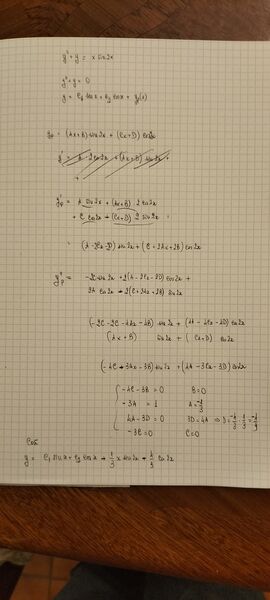 y'' + y = x sin 2x
y'' + y = 0
y = c₁ sin x + c₂ cos x + yₚ(x)
yₚ = (Ax+B) sin 2x + (Cx+D) cos 2x
yₚ' = A sin 2x + (Ax+B) 2 cos 2x
+ C cos 2x - (Cx+D) 2 sin 2x =
= (A - 2Cx - 2D) sin 2x + (C + 2Ax + 2B) cos 2x
yₚ'' = -2C sin 2x + 2(A - 2Cx - 2D) cos 2x +
2A cos 2x - 2(C + 2Ax + 2B) sin 2x
(-2C - 2C - 4Ax - 4B) sin 2x + (4A - 4Cx - 4D) cos 2x
(Ax + B) sin 2x + (Cx + D) cos 2x
(-4C - 3Ax - 3B) sin 2x + (4A - 3Cx - 3D) cos 2x
-4C - 3B = 0 B = 0
-3A = 1 A = -1/3
4A - 3D = 0 3D = 4A
-3C = 0 C = 0
y = c₁ sin x + c₂ cos x